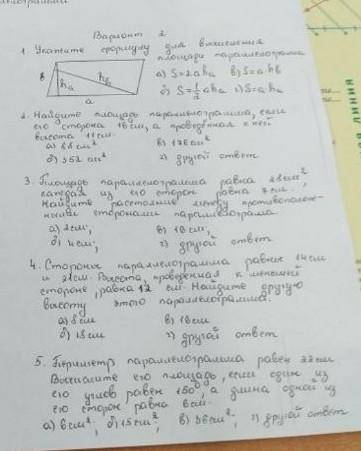 Вариант 2
1. Укажите формулу для вычисления
площади параллелограмма
в
hв
hа
а
а) S=2ahа в) S=ahв
б) S=1/2 ahа г) S=ahа
2. Найдите площадь параллелограмма, если
его сторона 16 см, а проведённая к ней
высота 11 см.
а) 88 см² в) 176 см²
б) 352 см² г) другой ответ
3. Площадь параллелограмма равна 28 см²
каждая из его сторон равна 7 см.
Найдите расстояние между противополож-
ными сторонами параллелограмма.
а) 2 см; в) 18 см;
б) 4 см; г) другой ответ
4. Стороны параллелограмма равны 14 см
и 21 см. Высота, проведённая к меньшей
стороне, равна 12 см. Найдите другую
высоту этого параллелограмма.
а) 8 см в) 18 см
б) 15 см г) другой ответ
5. Периметр параллелограмма равен 22 см
Вычислите его площадь, если один из
его углов равен 150°, а длина одной из
его сторон равна 6 см.
а) 6 см²; б) 15 см²; в) 36 см²; г) другой ответ